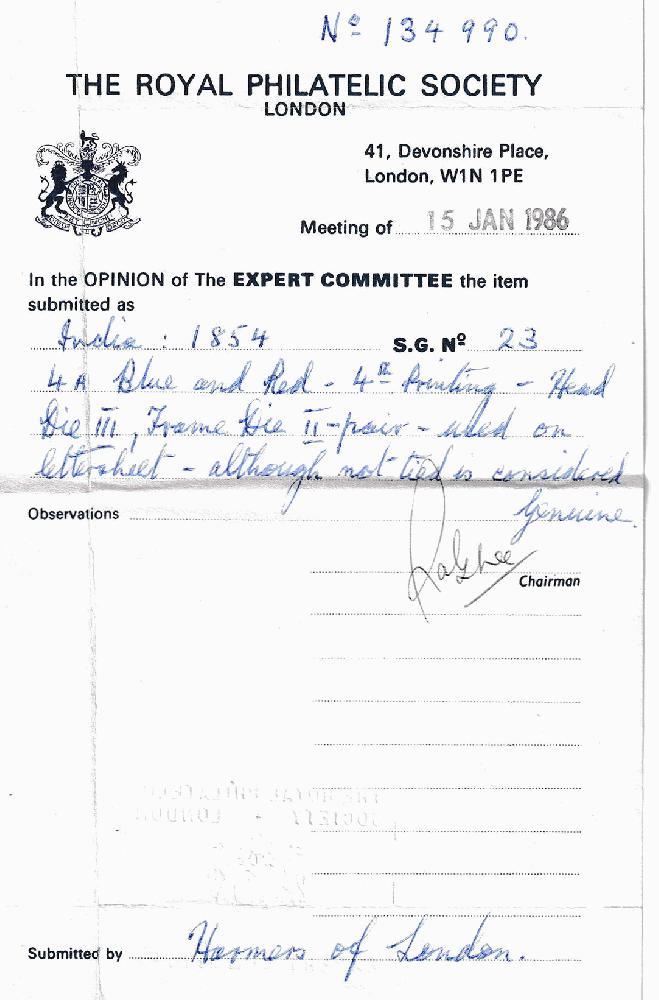 Nº 134 990.
THE ROYAL PHILATELIC SOCIETY
LONDON
41, Devonshire Place,
London, W1N 1PE
Meeting of 15 JAN 1986
In the OPINION of The EXPERT COMMITTEE the item
submitted as
India : 1854 S.G. Nº 23
4A Blue and Red - 4th Printing - Head
Die III, Frame Die II - pair - used on
lettersheet - although not tied is considered
Observations genuine.
Chairman
THE ROYAL PHILATELIC
SOCIETY - LONDON
Submitted by Harmers of London.